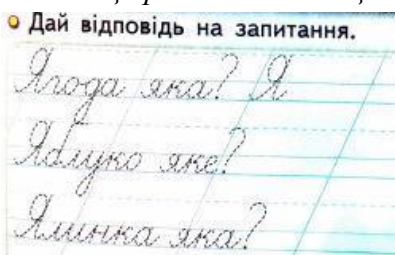 Дай відповідь на запитання.
Ягода яка? Я
Яблуко яке?
Ялинка яка?